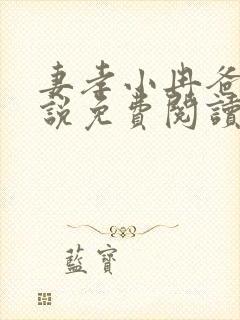 妻孝小冉爸
說免費閱讀
藍寶